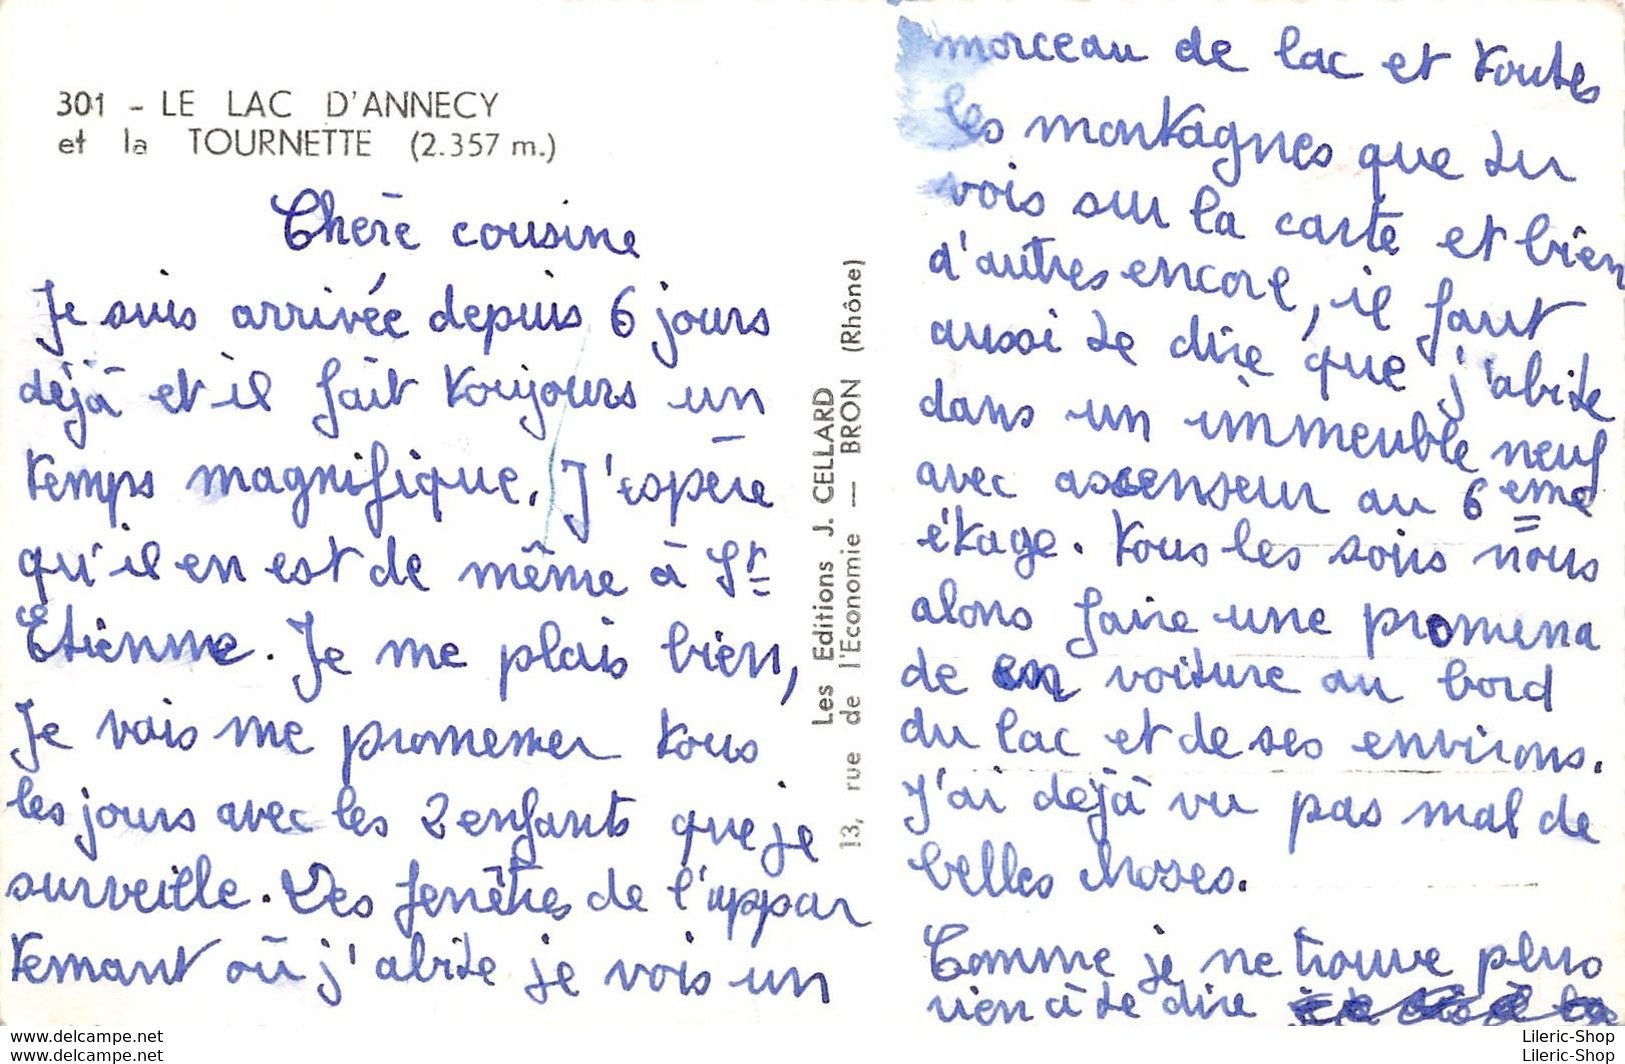 301 - LE LAC D'ANNECY
et la TOURNETTE (2.357 m.)
Chère cousine
Je suis arrivée depuis 6 jours
déjà et il fait toujours un
temps magnifique. J'espère
qu'il en est de même à St
Etienne. Je me plais bien,
Je vais me promener tous
les jours avec les 2 enfants que je
surveille. Des fenêtres de l'appar
temant où j'abite je vois un
Les Editions J. CELLARD
13, rue de l'Economie — BRON (Rhône)
morceau de lac et toutes
les montagnes que tu
vois sur la carte et bien
d'autres encore, il faut
aussi te dire que j'abite
dans un immeuble neuf
avec ascenseur au 6eme
étage. Tous les soirs nous
alons faire une promena
de en voiture au bord
du lac et de ses environs.
J'ai déjà vu pas mal de
belles choses.
Comme je ne trouve plus
rien à te dire
www.delcampe.net
www.delcampe.net
Lileric-Shop
Lileric-Shop